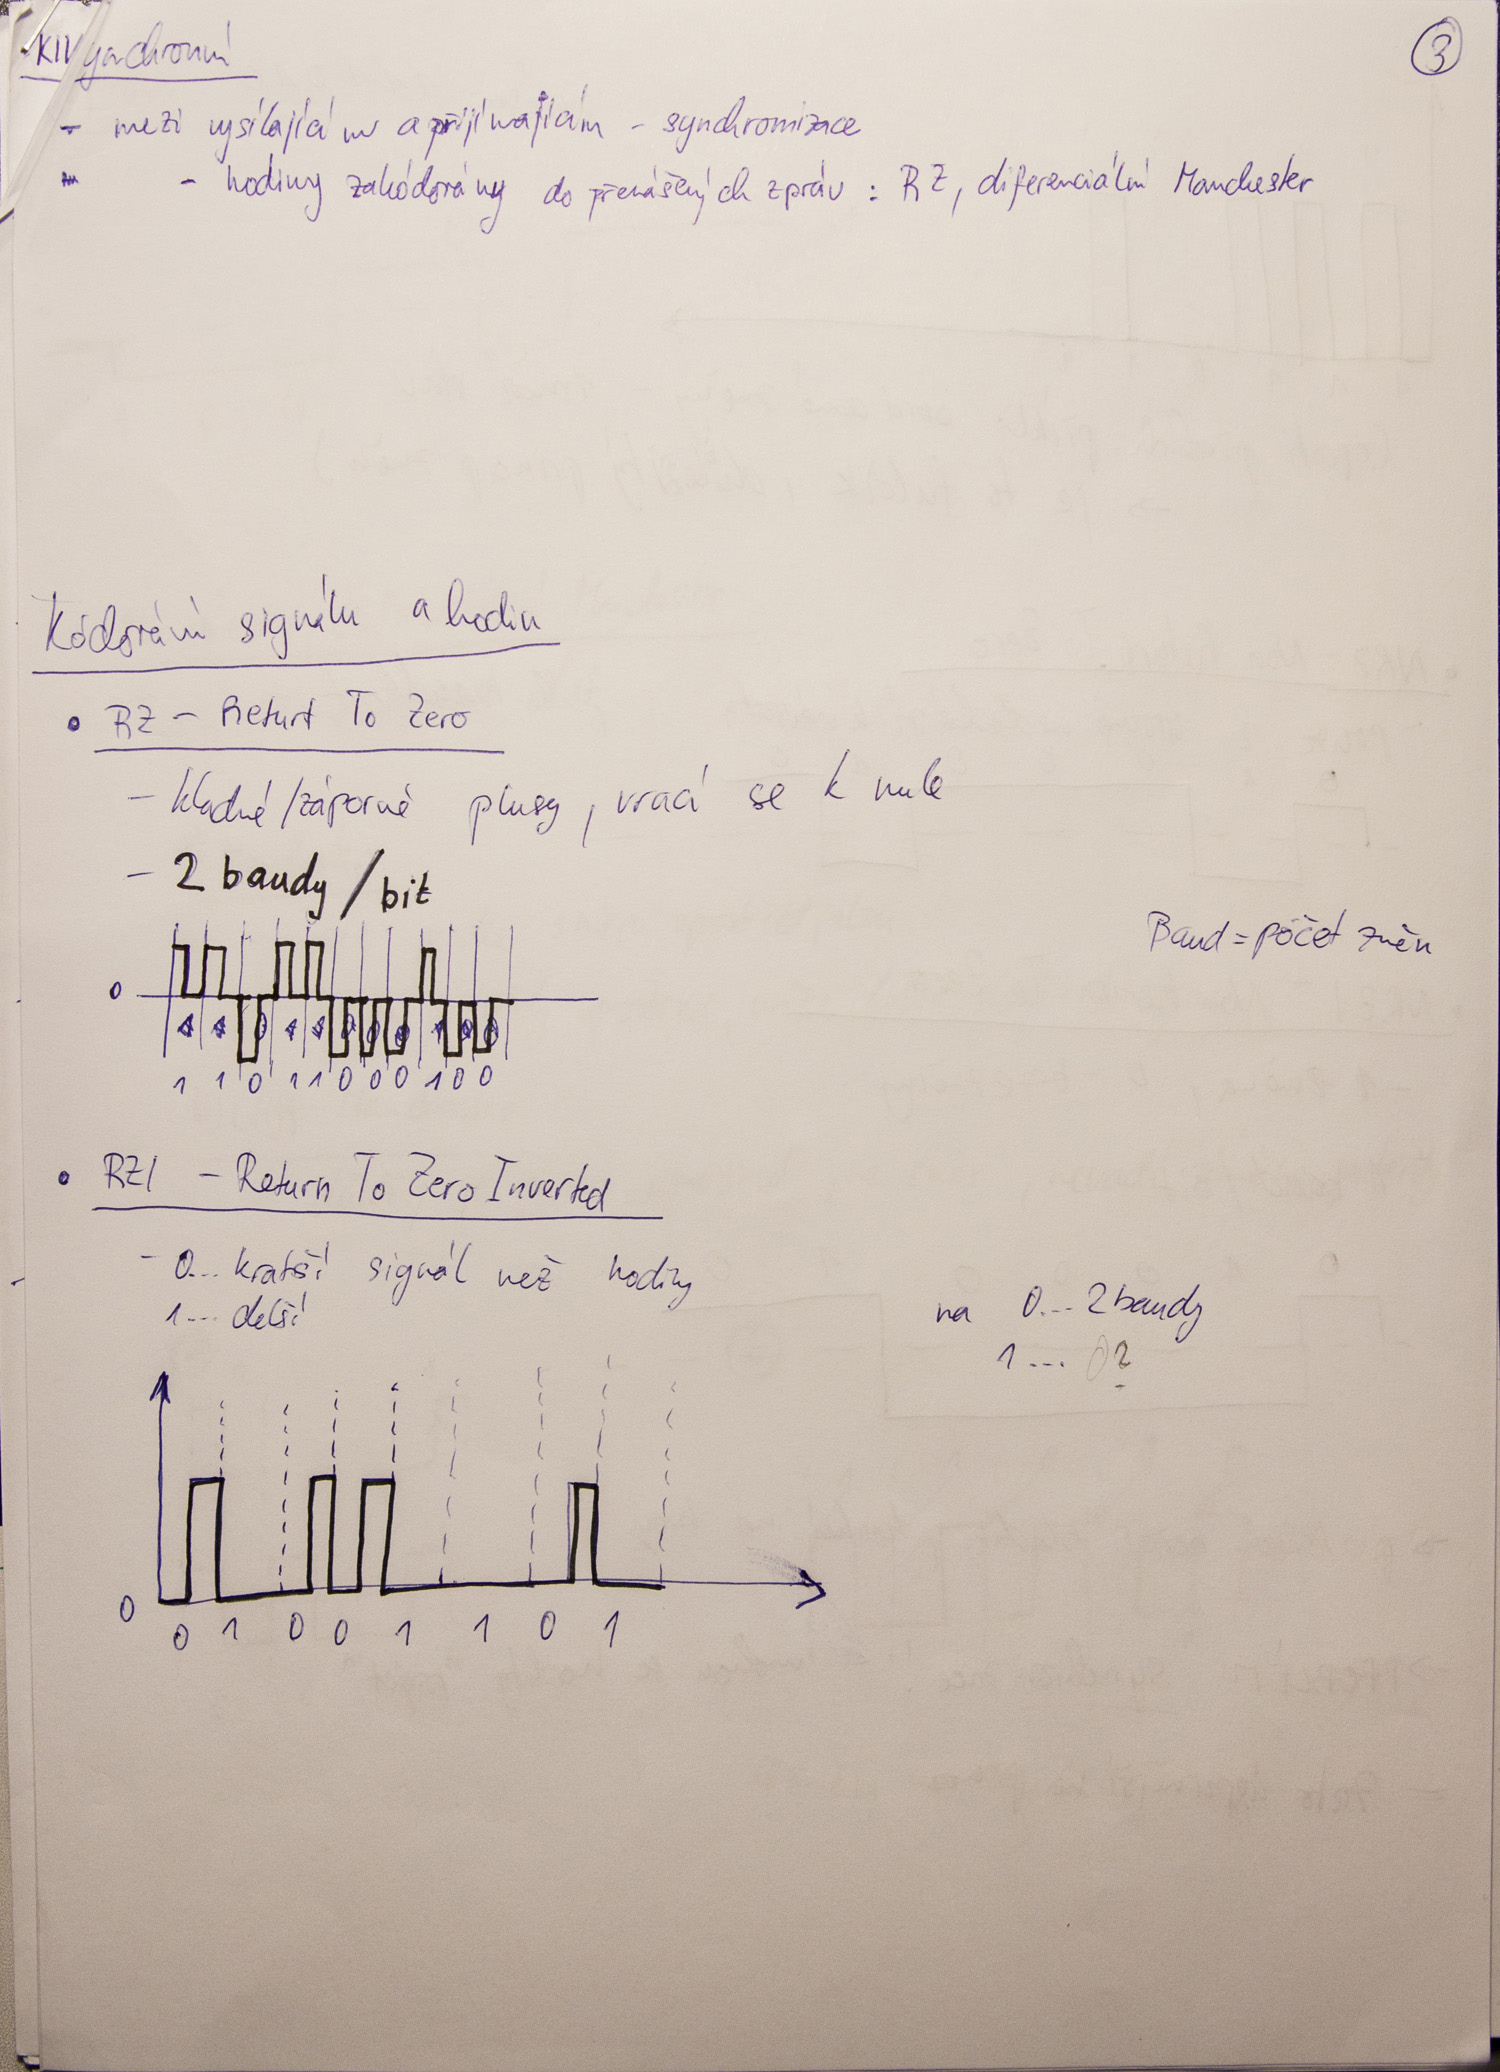 3
synchronní
- mezi vysílajícím a přijímajícím - synchronizace
- hodiny zakódovány do přenášených zpráv : RZ, diferenciální Manchester
Kódování signálu a hodin
• RZ - Return To Zero
- kladné/záporné plusy, vrací se k nule
- 2 baudy/bit
Baud = počet změn
0
1 1 0 1 1 0 0 0 1 0 0
• RZI - Return To Zero Inverted
- 0... kratší signál než hodiny
1... delší
na 0... 2 baudy
1...
0
0 1 0 0 1 1 0 1